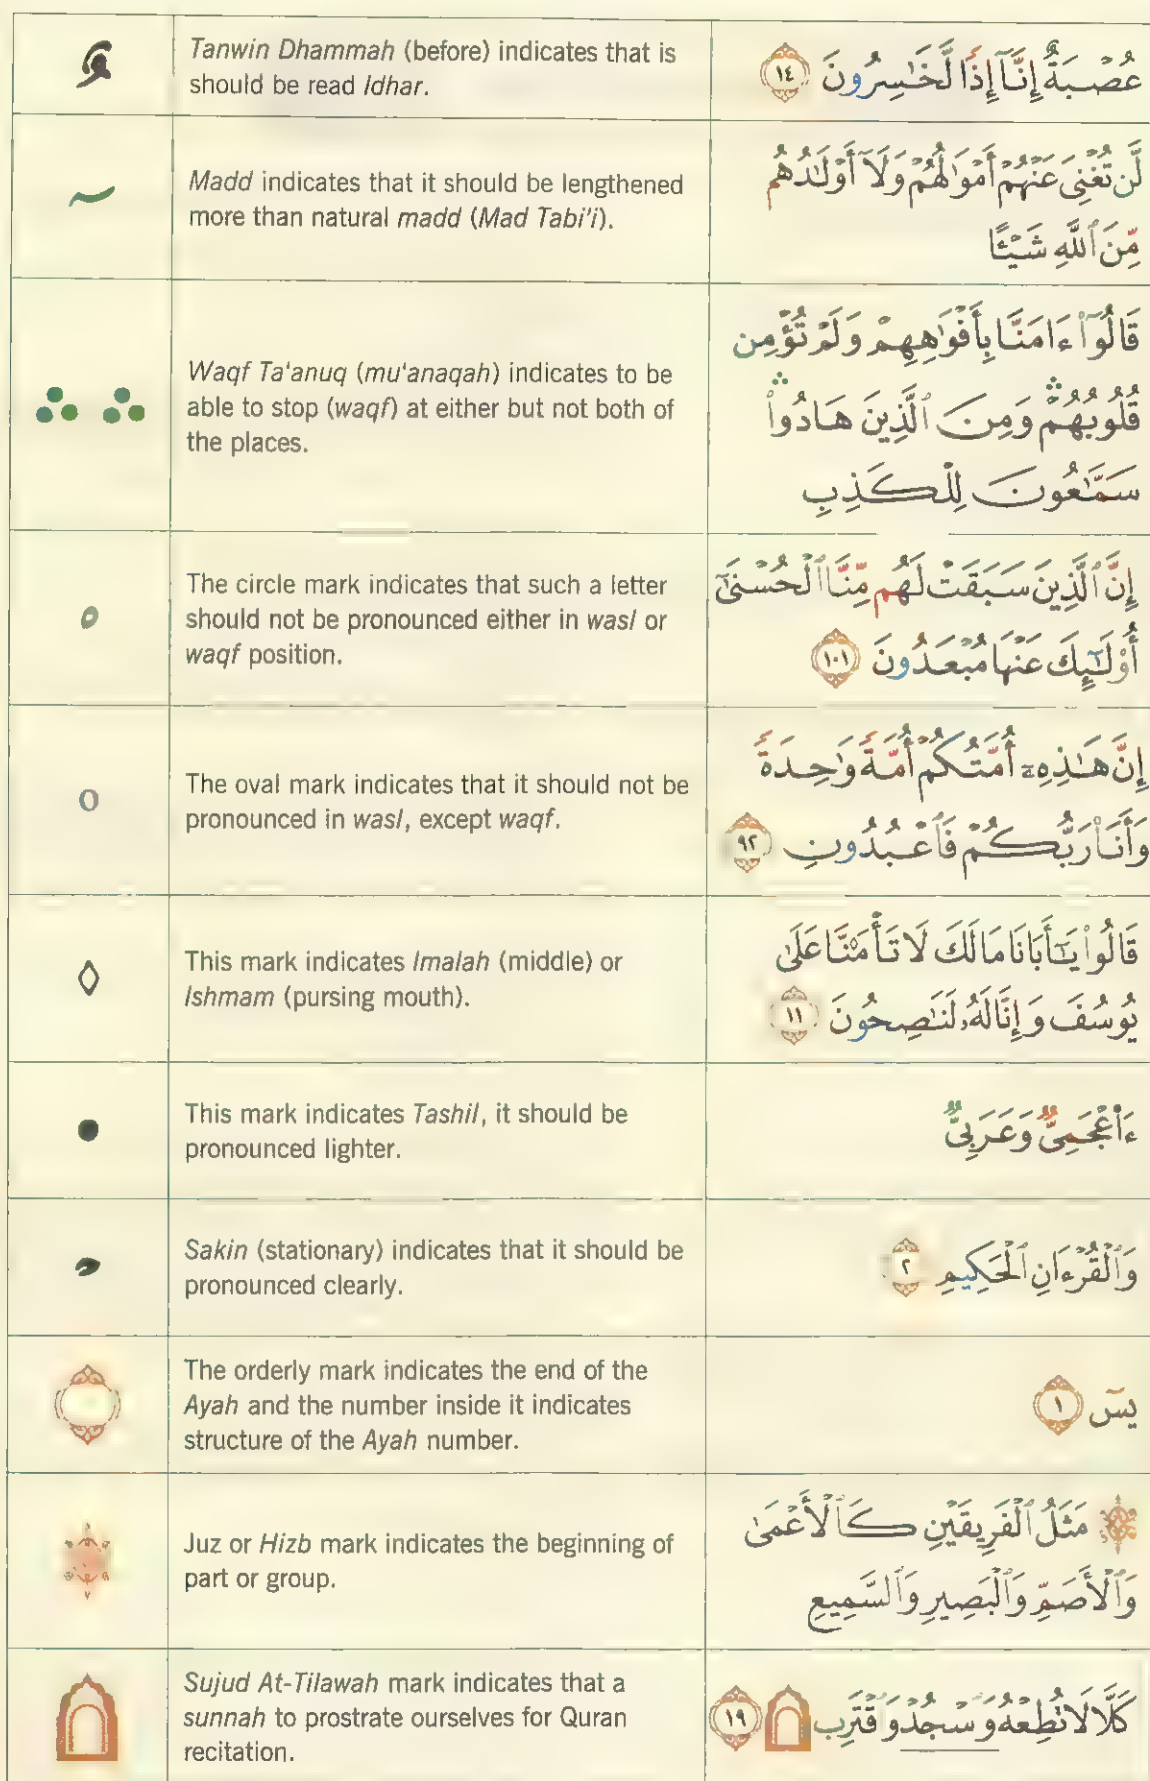 Tanwin Dhammah (before) indicates that is
should be read Idhar.
عُصْبَةٌ إِنَّآ إِذًا لَّخَٰسِرُونَ ١٤
Madd indicates that it should be lengthened
more than natural madd (Mad Tabi'i).
لَن تُغْنِىَ عَنْهُمْ أَمْوَٰلُهُمْ وَلَآ أَوْلَٰدُهُم
مِّنَ ٱللَّهِ شَيْـًٔا
Waqf Ta'anuq (mu'anaqah) indicates to be
able to stop (waqf) at either but not both of
the places.
قَالُوٓا۟ ءَامَنَّا بِأَفْوَٰهِهِمْ وَلَمْ تُؤْمِن
قُلُوبُهُمْ ۛ وَمِنَ ٱلَّذِينَ هَادُوا۟ ۛ
سَمَّٰعُونَ لِلْكَذِبِ
The circle mark indicates that such a letter
should not be pronounced either in wasl or
waqf position.
إِنَّ ٱلَّذِينَ سَبَقَتْ لَهُم مِّنَّا ٱلْحُسْنَىٰٓ
أُو۟لَٰٓئِكَ عَنْهَا مُبْعَدُونَ ١٠١
The oval mark indicates that it should not be
pronounced in wasl, except waqf.
إِنَّ هَٰذِهِۦٓ أُمَّتُكُمْ أُمَّةً وَٰحِدَةً
وَأَنَا۠ رَبُّكُمْ فَٱعْبُدُونِ ٩٢
This mark indicates Imalah (middle) or
Ishmam (pursing mouth).
قَالُوا۟ يَٰٓأَبَانَا مَالَكَ لَا تَأْمَ۫نَّا عَلَىٰ
يُوسُفَ وَإِنَّا لَهُۥ لَنَٰصِحُونَ ١١
This mark indicates Tashil, it should be
pronounced lighter.
ءَا۬عْجَمِىٌّ وَعَرَبِىٌّ
Sakin (stationary) indicates that it should be
pronounced clearly.
وَٱلْقُرْءَانِ ٱلْحَكِيمِ ٢
The orderly mark indicates the end of the
Ayah and the number inside it indicates
structure of the Ayah number.
يسٓ ١
Juz or Hizb mark indicates the beginning of
part or group.
۞ مَثَلُ ٱلْفَرِيقَيْنِ كَٱلْأَعْمَىٰ
وَٱلْأَصَمِّ وَٱلْبَصِيرِ وَٱلسَّمِيعِ
Sujud At-Tilawah mark indicates that a
sunnah to prostrate ourselves for Quran
recitation.
كَلَّا لَا تُطِعْهُ وَٱسْجُدْ وَٱقْتَرِب ۩ ١٩